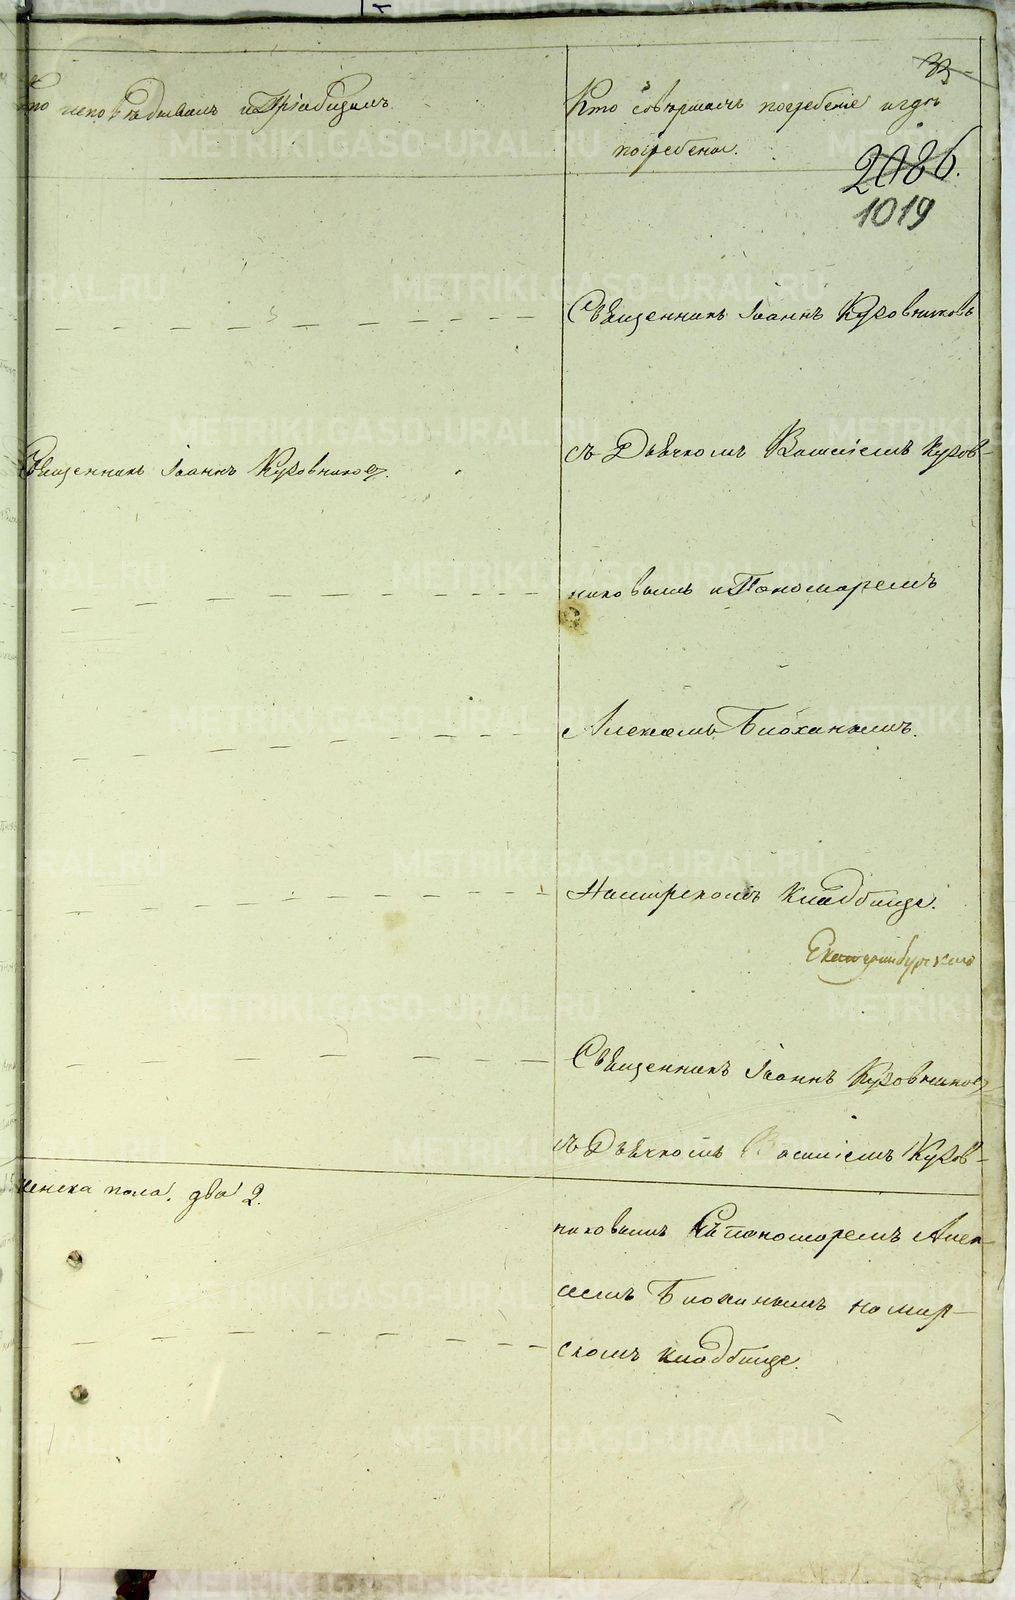 33
Кто исповѣдывалъ и Пріобщалъ
Кто совершалъ погребеніе и гдѣ
погребены.
2086.
1019
Священникъ Іоаннъ Куровниковъ
Священникъ Іоаннъ Куровниковъ.
съ Дьячкомъ Василіемъ Куров-
никовымъ и Пономаремъ
Алексѣемъ Блохинымъ.
На мирскомъ кладбищѣ.
Екатеринбургскаго
Священникъ Іоаннъ Куровниковъ
съ Дьячкомъ Василіемъ Куров-
женска пола. два 2.
никовымъ Съ пономаремъ Алек-
сѣемъ Блохинымъ на мир-
скомъ кладбищѣ.
METRIKI.GASO-URAL.RU